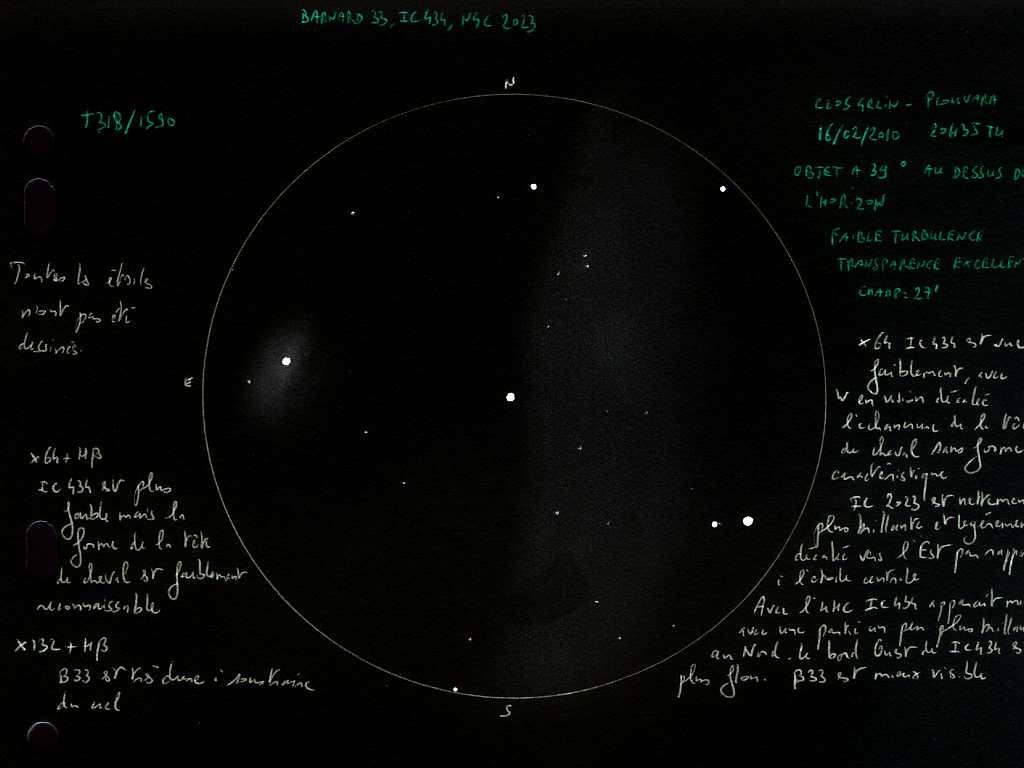 BARNARD 33, IC 434, NGC 2023
N
T318/1590
CLOS GRLIN - PLOUVARA
16/02/2010 20H35 TU
OBJET A 39° AU DESSUS DE
L'HORIZON
FAIBLE TURBULENCE
TRANSPARENCE EXCELLENT
CHAMP: 27'
Toutes les étoiles
n'ont pas été
dessinés.
E
x64 IC 434 est vue
faiblement, avec
en vision décalée
l'échancrure de la tête
de cheval sans forme
caractéristique
IC 2023 est nettement
plus brillante et légèrement
décalée vers l'Est par rappo
à l'étoile centrale
Avec l'UHC IC 434 apparait mi
avec une partie un peu plus brillan
au Nord. le bord Ouest de IC 434 es
plus flou. B33 est mieux visible
x64 + Hβ
IC 434 est plus
faible mais la
forme de la tête
de cheval est faiblement
reconnaissable
x132 + Hβ
B33 est très dure à
du ciel
S